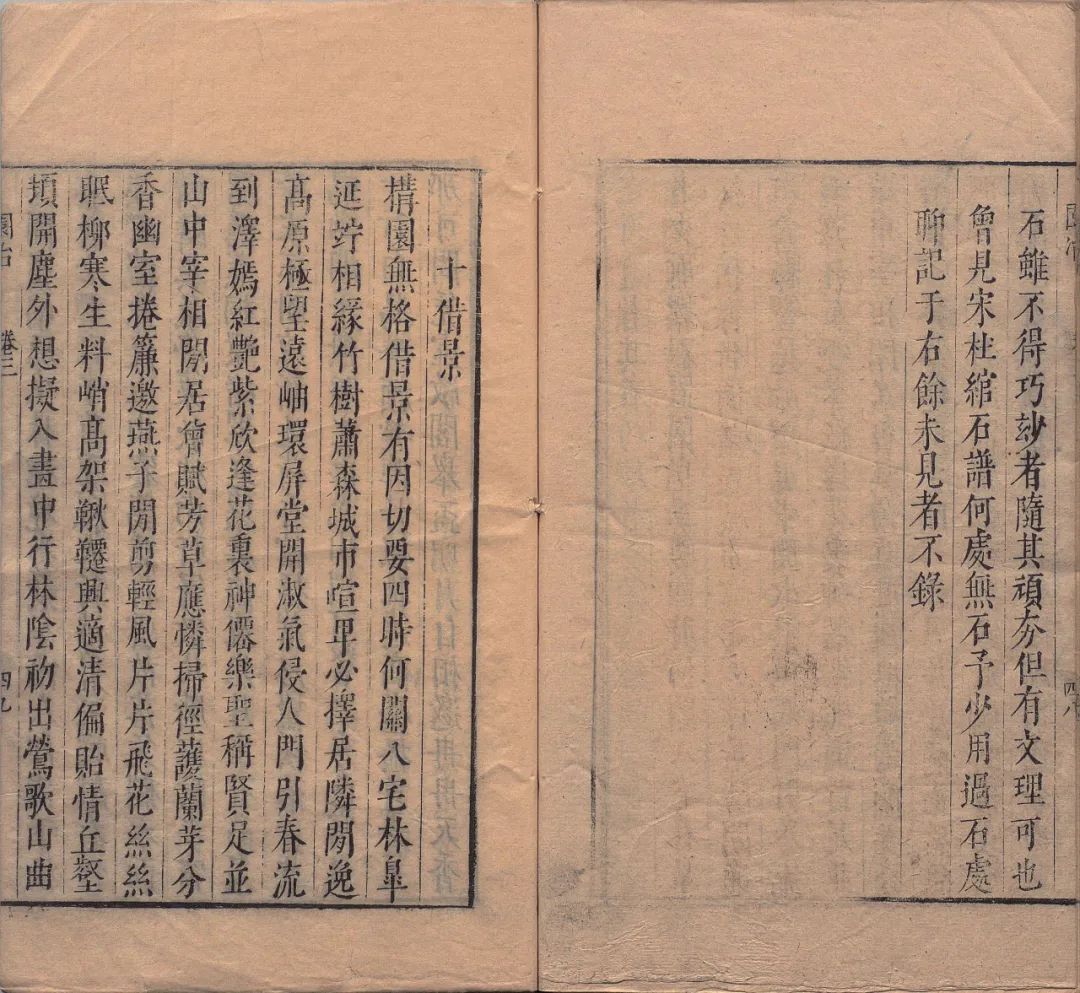 石雖不得巧玅者隨其頑夯但有文理可也
曾見宋杜綰石譜何處無石予少用過石處
聊記于右餘未見者不錄
十借景
構園無格借景有因切要四時何關八宅林皐
延竚相緣竹樹蕭森城市喧卑必擇居隣閒逸
高原極望遠岫環屏堂開淑氣侵人門引春流
到澤嫣紅艷紫欣逢花裏神僊樂聖稱賢足並
山中宰相閒居曾賦芳草應憐掃徑護蘭芽分
香幽室捲簾邀燕子閒剪輕風片片飛花絲絲
眠柳寒生料峭高架鞦韆興適清偏貽情丘壑
頓開塵外想擬入畫中行林陰初出鶯歌山曲
園冶 卷三 四九